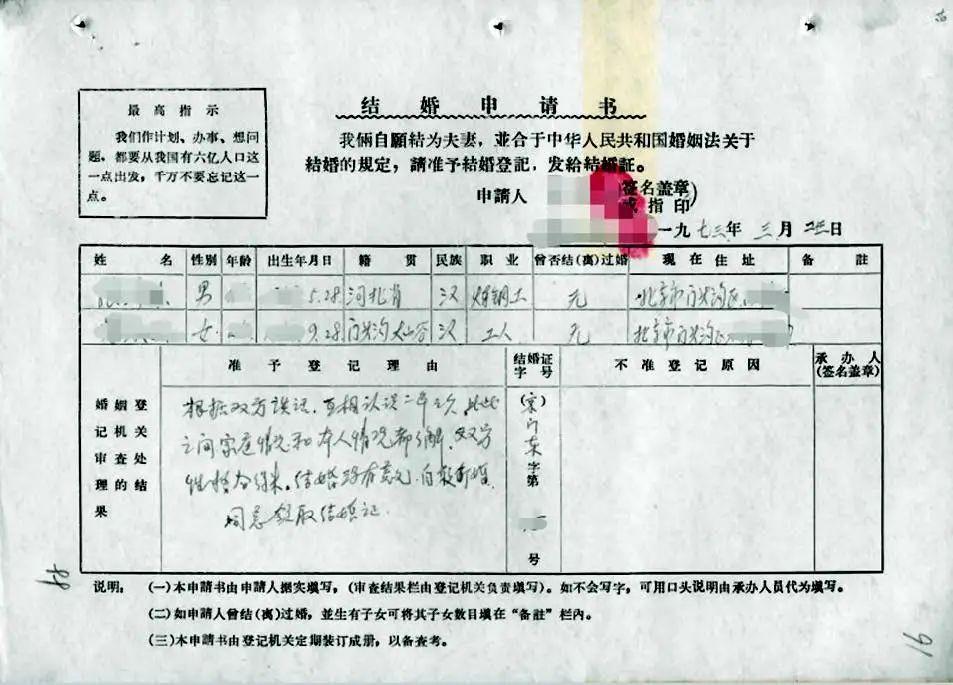 最高指示
我们作计划、办事、想问
题，都要从我国有六亿人口这
一点出发，千万不要忘记这一
点。
结婚申请书
我俩自願結为夫妻，並合于中华人民共和国婚姻法关于
結婚的規定，請准予結婚登記，发給結婚証。
申請人
(签名盖章
或指印)
一九七三年 三月 日
姓名 性别 年龄 出生年月日 籍贯 民族 职业 曾否结(离)过婚 现在住址 备註
男 5.28 河北省 汉 炼钢工 无 北京市门头沟区
女 9.28 门头沟 汉 工人 无 北京市门头沟区
婚姻登
记机关
审查处
理的结
果
准予登记理由
根据双方谈话，互相认识二年之久，彼此
之间家庭情况和本人情况都了解，双方
性格合得来。结婚没有意见，自报
同意领取结婚证.
结婚证
字号
字第
号
不准登记原因
承办人
(签名盖章)
说明：(一)本申請書由申請人据实填写，(审查結果栏由登记机关負責填写)。如不会写字，可用口头说明由承办人員代为填写。
(二)如申請人曾結(离)过婚，並生有子女可将其子女数目填在“备註”栏內。
(三)本申請書由登记机关定期装订成册，以备查考。
91